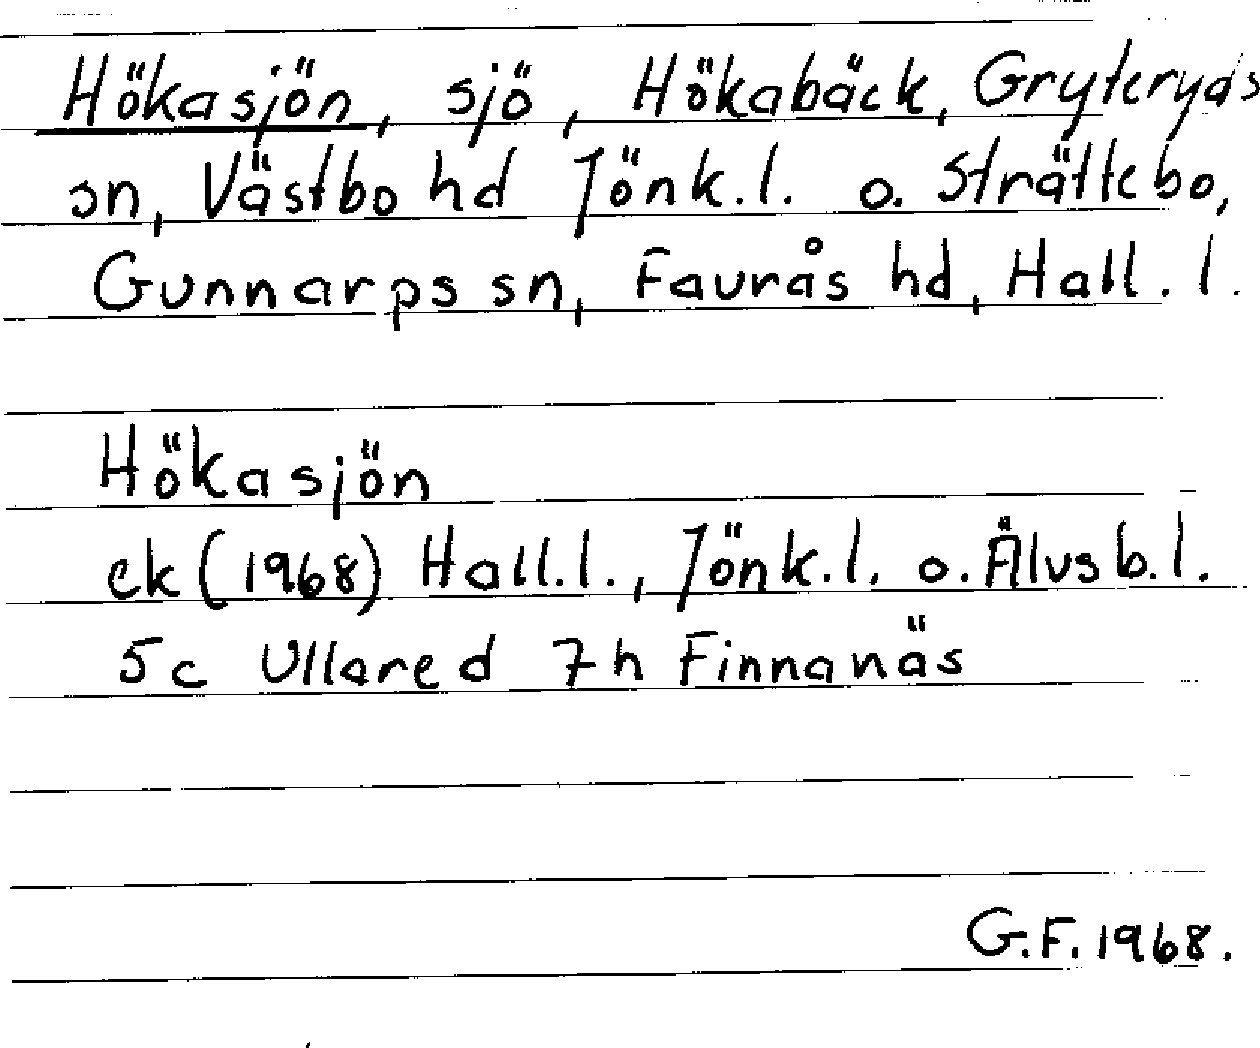 Hökasjön, sjö, Hökabäck, Gryteryds
sn, Västbo hd Jönk.l. o. Strättebo,
Gunnarps sn, Faurås hd, Hall.l.
Hökasjön
ek (1968) Hall.l., Jönk.l. o. Älvsb.l.
5c Ullared 7h Finnanäs
G.F. 1968.